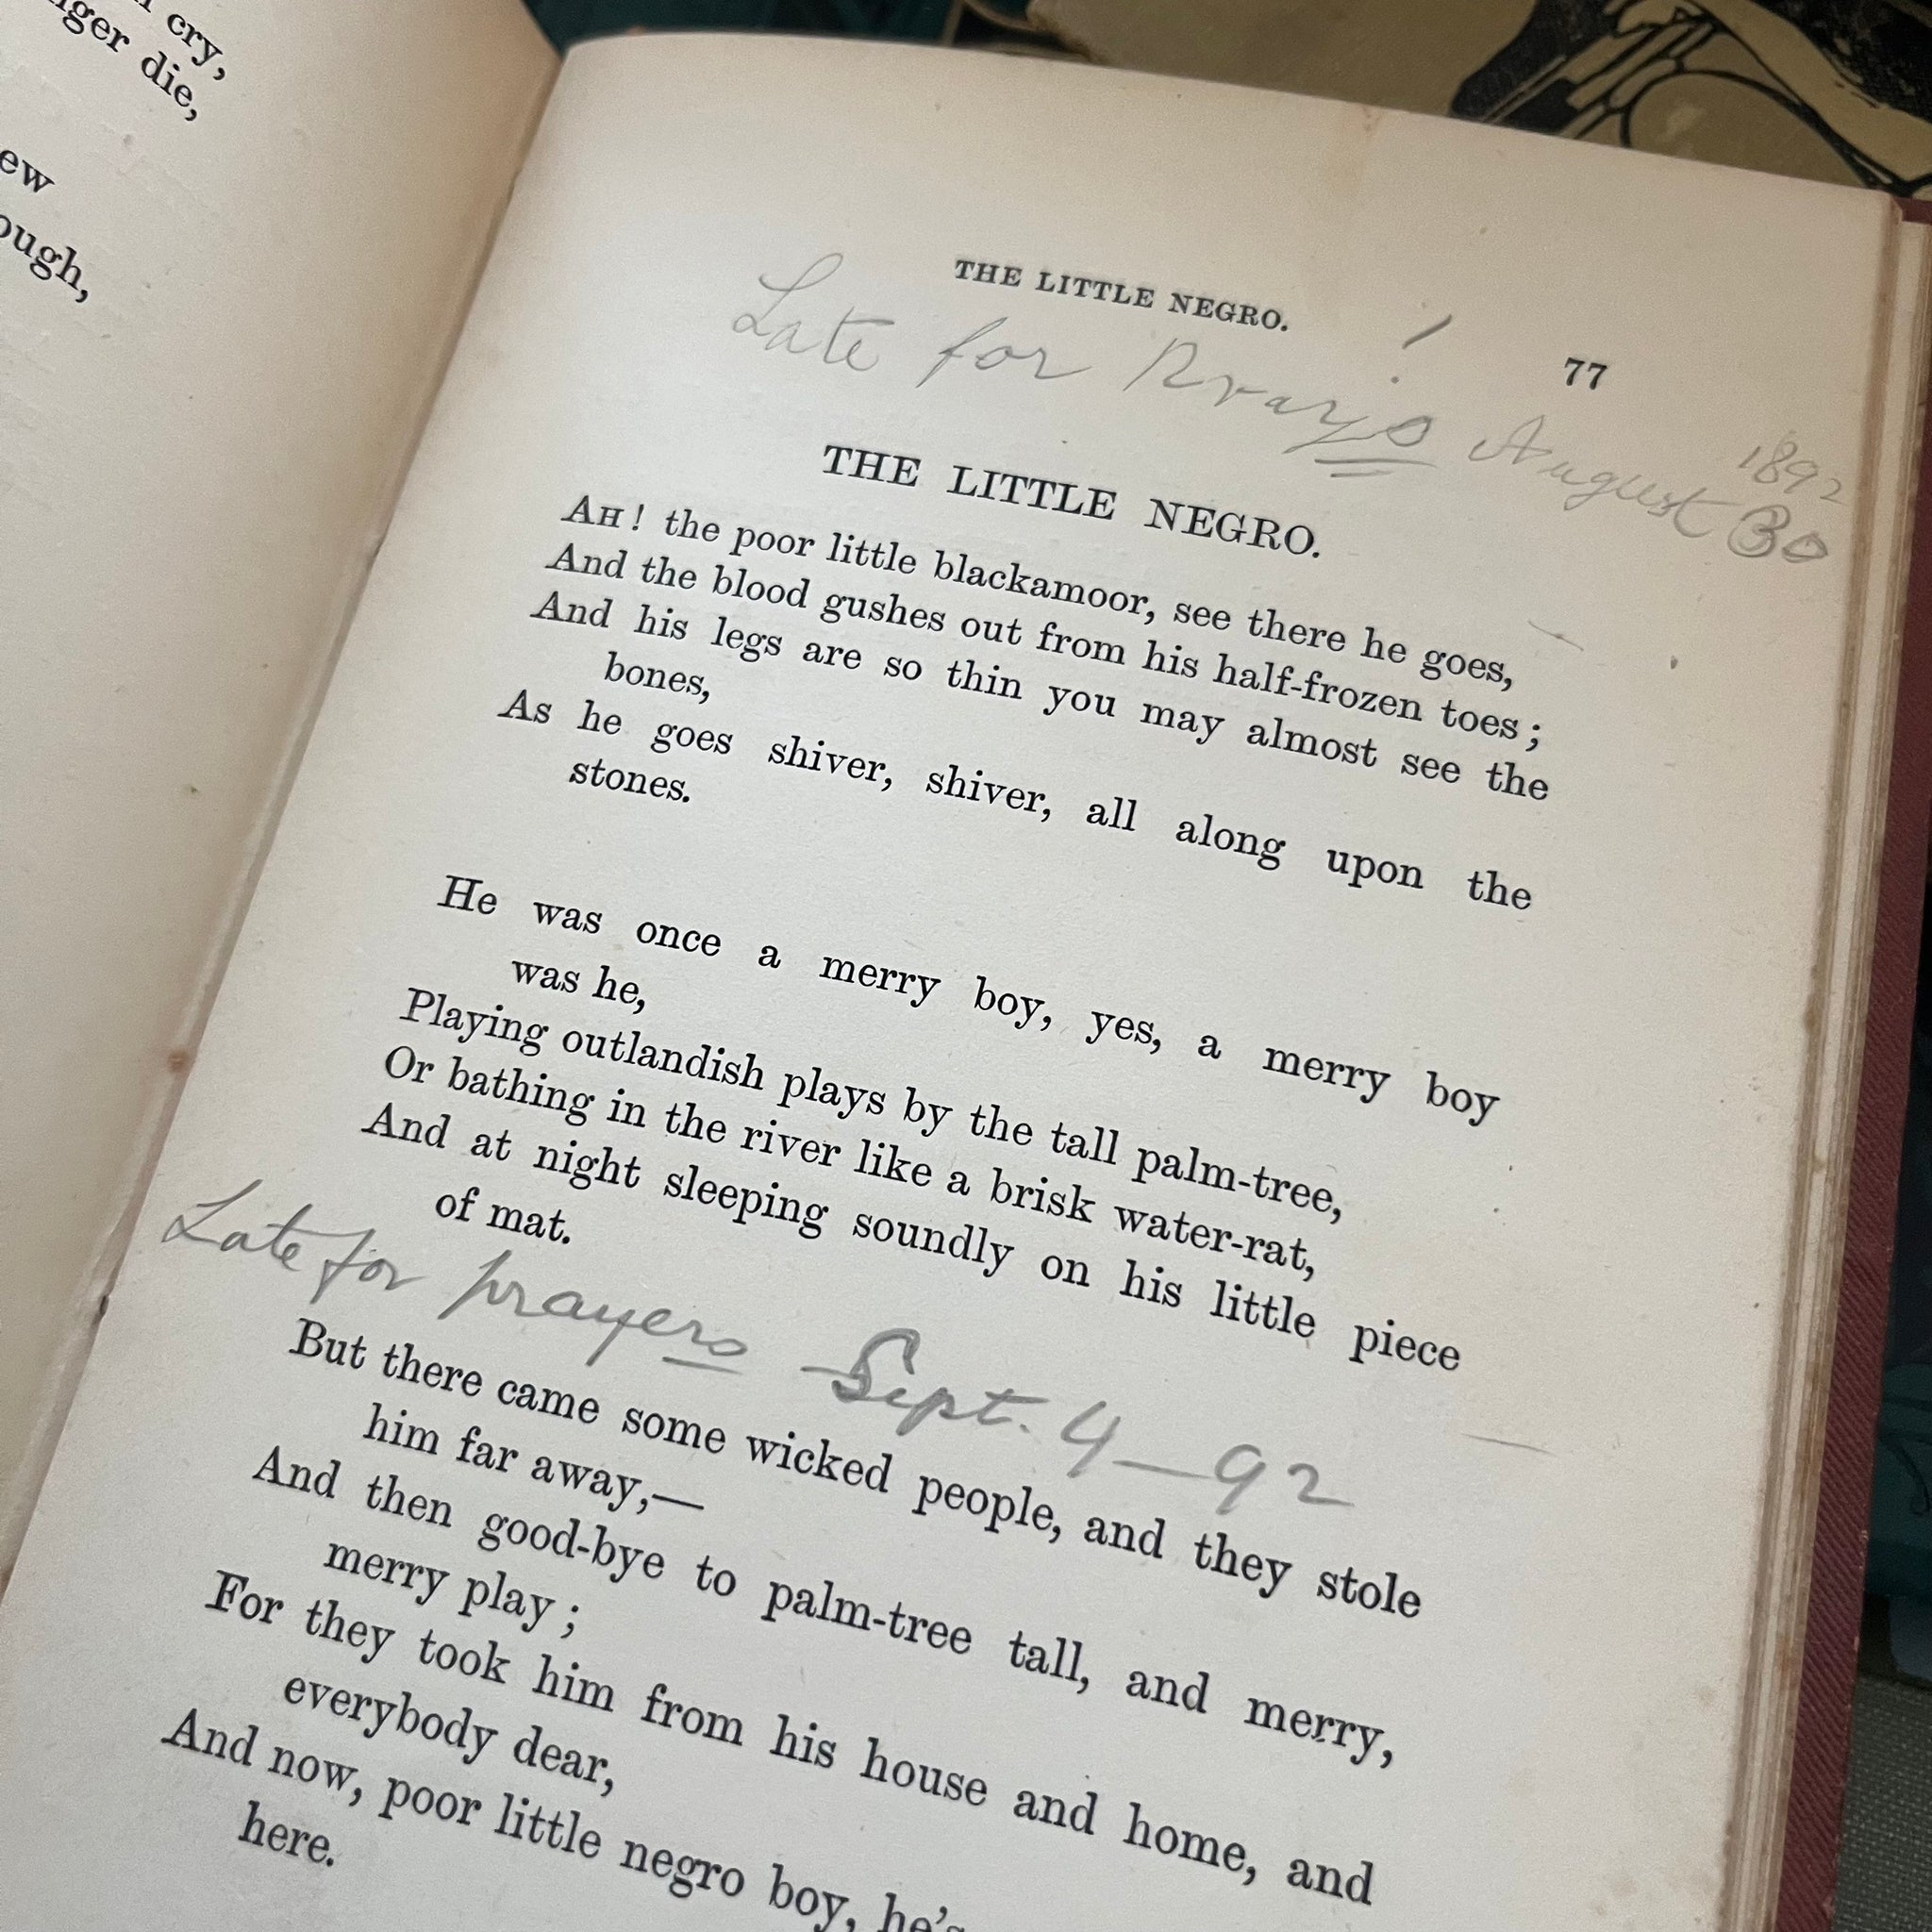 cry,
die,
ew
ough,
THE LITTLE NEGRO.
77
Late for
August 30
1892
THE LITTLE NEGRO.
AH! the poor little blackamoor, see there he goes,
And the blood gushes out from his half-frozen toes;
And his legs are so thin you may almost see the
bones,
As he goes shiver, shiver, all along upon the
stones.
He was once a merry boy, yes, a merry boy
was he,
Playing outlandish plays by the tall palm-tree,
Or bathing in the river like a brisk water-rat,
And at night sleeping soundly on his little piece
of mat.
Late for prayers Sept. 4—92
But there came some wicked people, and they stole
him far away,—
And then good-bye to palm-tree tall, and merry,
merry play;
For they took him from his house and home, and
everybody dear,
And now, poor little negro boy, he's
here.